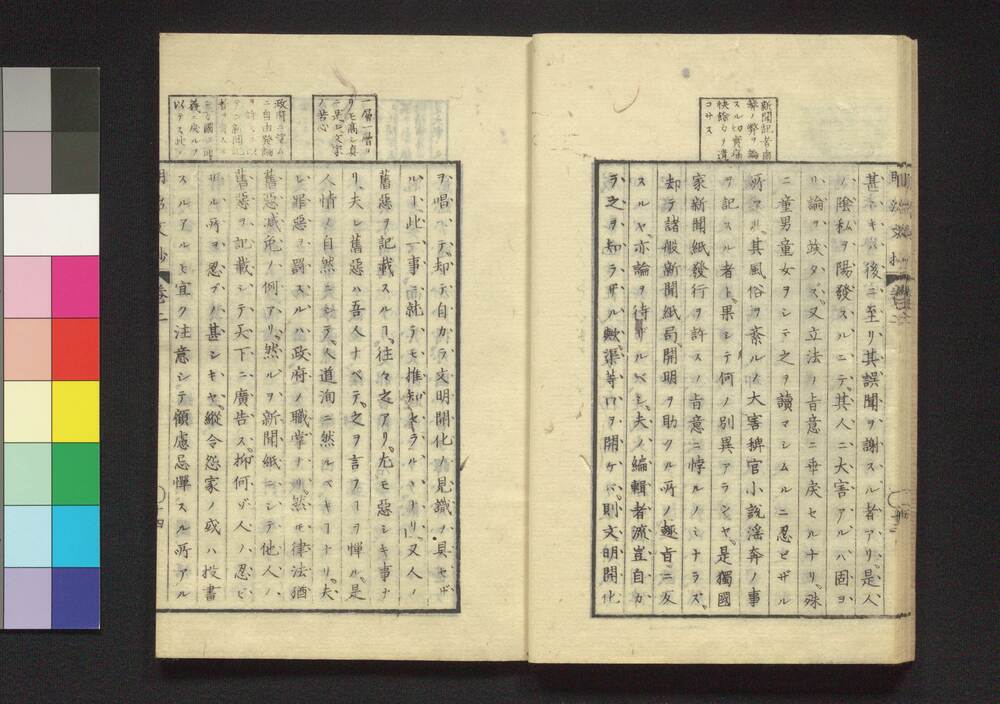 新聞記者南
コサス
甚シキハ後ニ至リ其誤聞ヲ謝スル者アリ是人
ノ陰私ヲ陽發スルニテ其人ニ大害アルハ固ヨ
リ論ヲ竢タズ又立法ノ旨意ニ乖戾セルナリ殊
ニ童男童女ヲシテ之ヲ讀マシムルニ忍ビザル
所アリ其風俗ヲ紊ルノ大害稗官小說淫奔ノ事
ヲ記スル者ト果シテ何ノ別異アランヤ是獨國
家新聞紙發行ヲ許スノ旨意ニ悖ルノミナラズ
却テ諸般新聞紙局開明ヲ助クル所ノ趣旨ニ反
スルヤ亦論ヲ待ザルベシ夫ノ編輯者流豈自カ
ラ之ヲ知ラザル歟渠等口ヲ開ケバ則文明開化
一層一層ヨ
リモ高シ真
ニ是レ文宗
ノ苦心
ヲ唱ヘテ却テ自カラ文明開化ノ見識ノ具セザ
ル此一事ニ就テモ推知セラルヽナリ又人ノ
舊惡ヲ記載スルヿ往々之アリ尤モ惡シキ事ナ
リ夫レ舊惡ハ吾人ナベテ之ヲ言フヿヲ憚ル是
人情ノ自然ニシテ人道洵ニ然ルベキヿナリ夫
レ罪惡ヲ罰スルハ政府ノ職掌ナリ然モ律法猶
舊惡減免ノ例アリ然ルヲ新聞紙ニシテ他人ノ
舊惡ヲ記載シテ天下ニ廣告ス抑何ゾ人ノ忍ビ
ザル所ヲ忍ブノ甚シキヤ縱令怨家ノ或ハ投書
スルアルモ宜ク注意シテ顧慮忌憚スル所アル